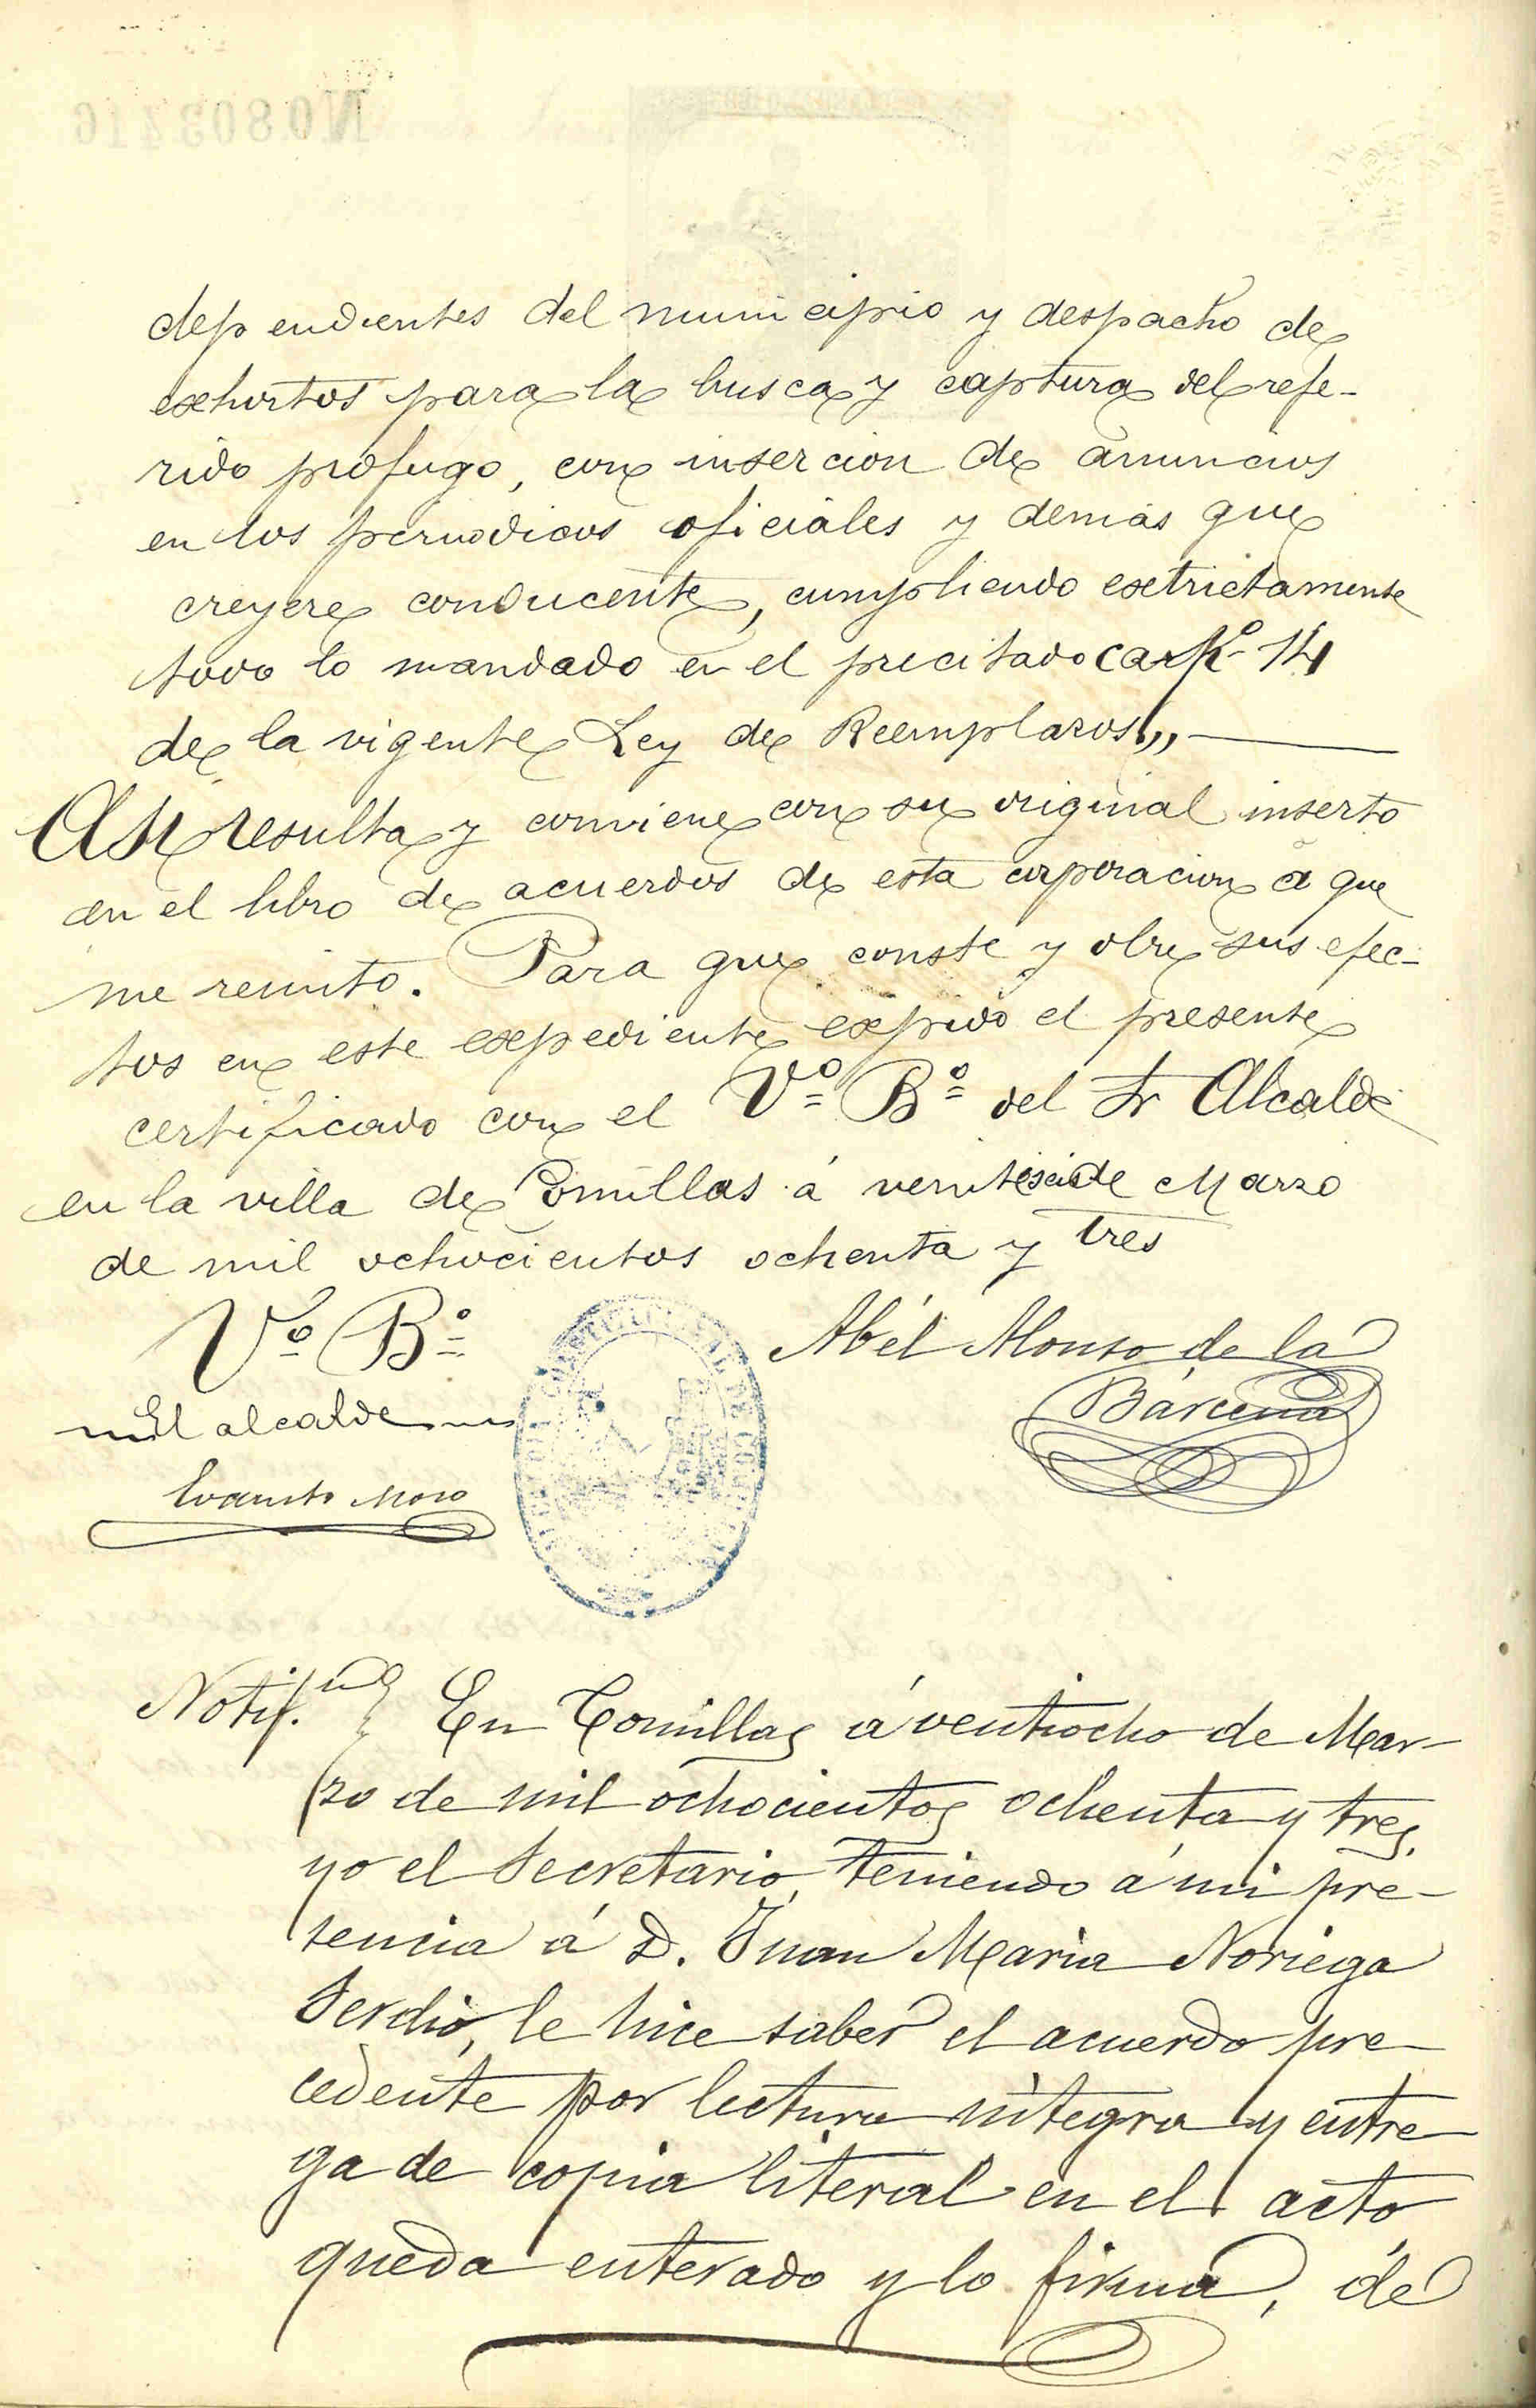 dependientes del municipio y despacho de
exhortos para la busca y captura del refe-
rido prófugo, con insercion de anuncios
en los periodicos oficiales y demás que
creyere conducente, cumpliendo extrictamente
todo lo mandado en el precitado capº 14
de la vigente Ley de Reemplazos,, 
Asi resulta y conviene con su original inserto
en el libro de acuerdos de esta corporacion á que
me remito. Para que conste y obre sus efec-
tos en este expediente expido el presente
certificado con el Vº Bº del Sr Alcalde
en la villa de Comillas á veintiseis de Marzo
de mil ochocientos ochenta y tres
Vº Bº
El alcalde
Evaristo Moro
Abél Alonso de la
Bárcena
Notif.on En Comillas á ventiocho de Mar-
zo de mil ochocientos ochenta y tres,
yo el Secretario, teniendo á mi pre-
sencia á D. Juan Maria Noriega
Serdio, le hice saber el acuerdo pre-
cedente por lectura integra y entre-
ga de copia literal en el acto
queda enterado y lo firma, de